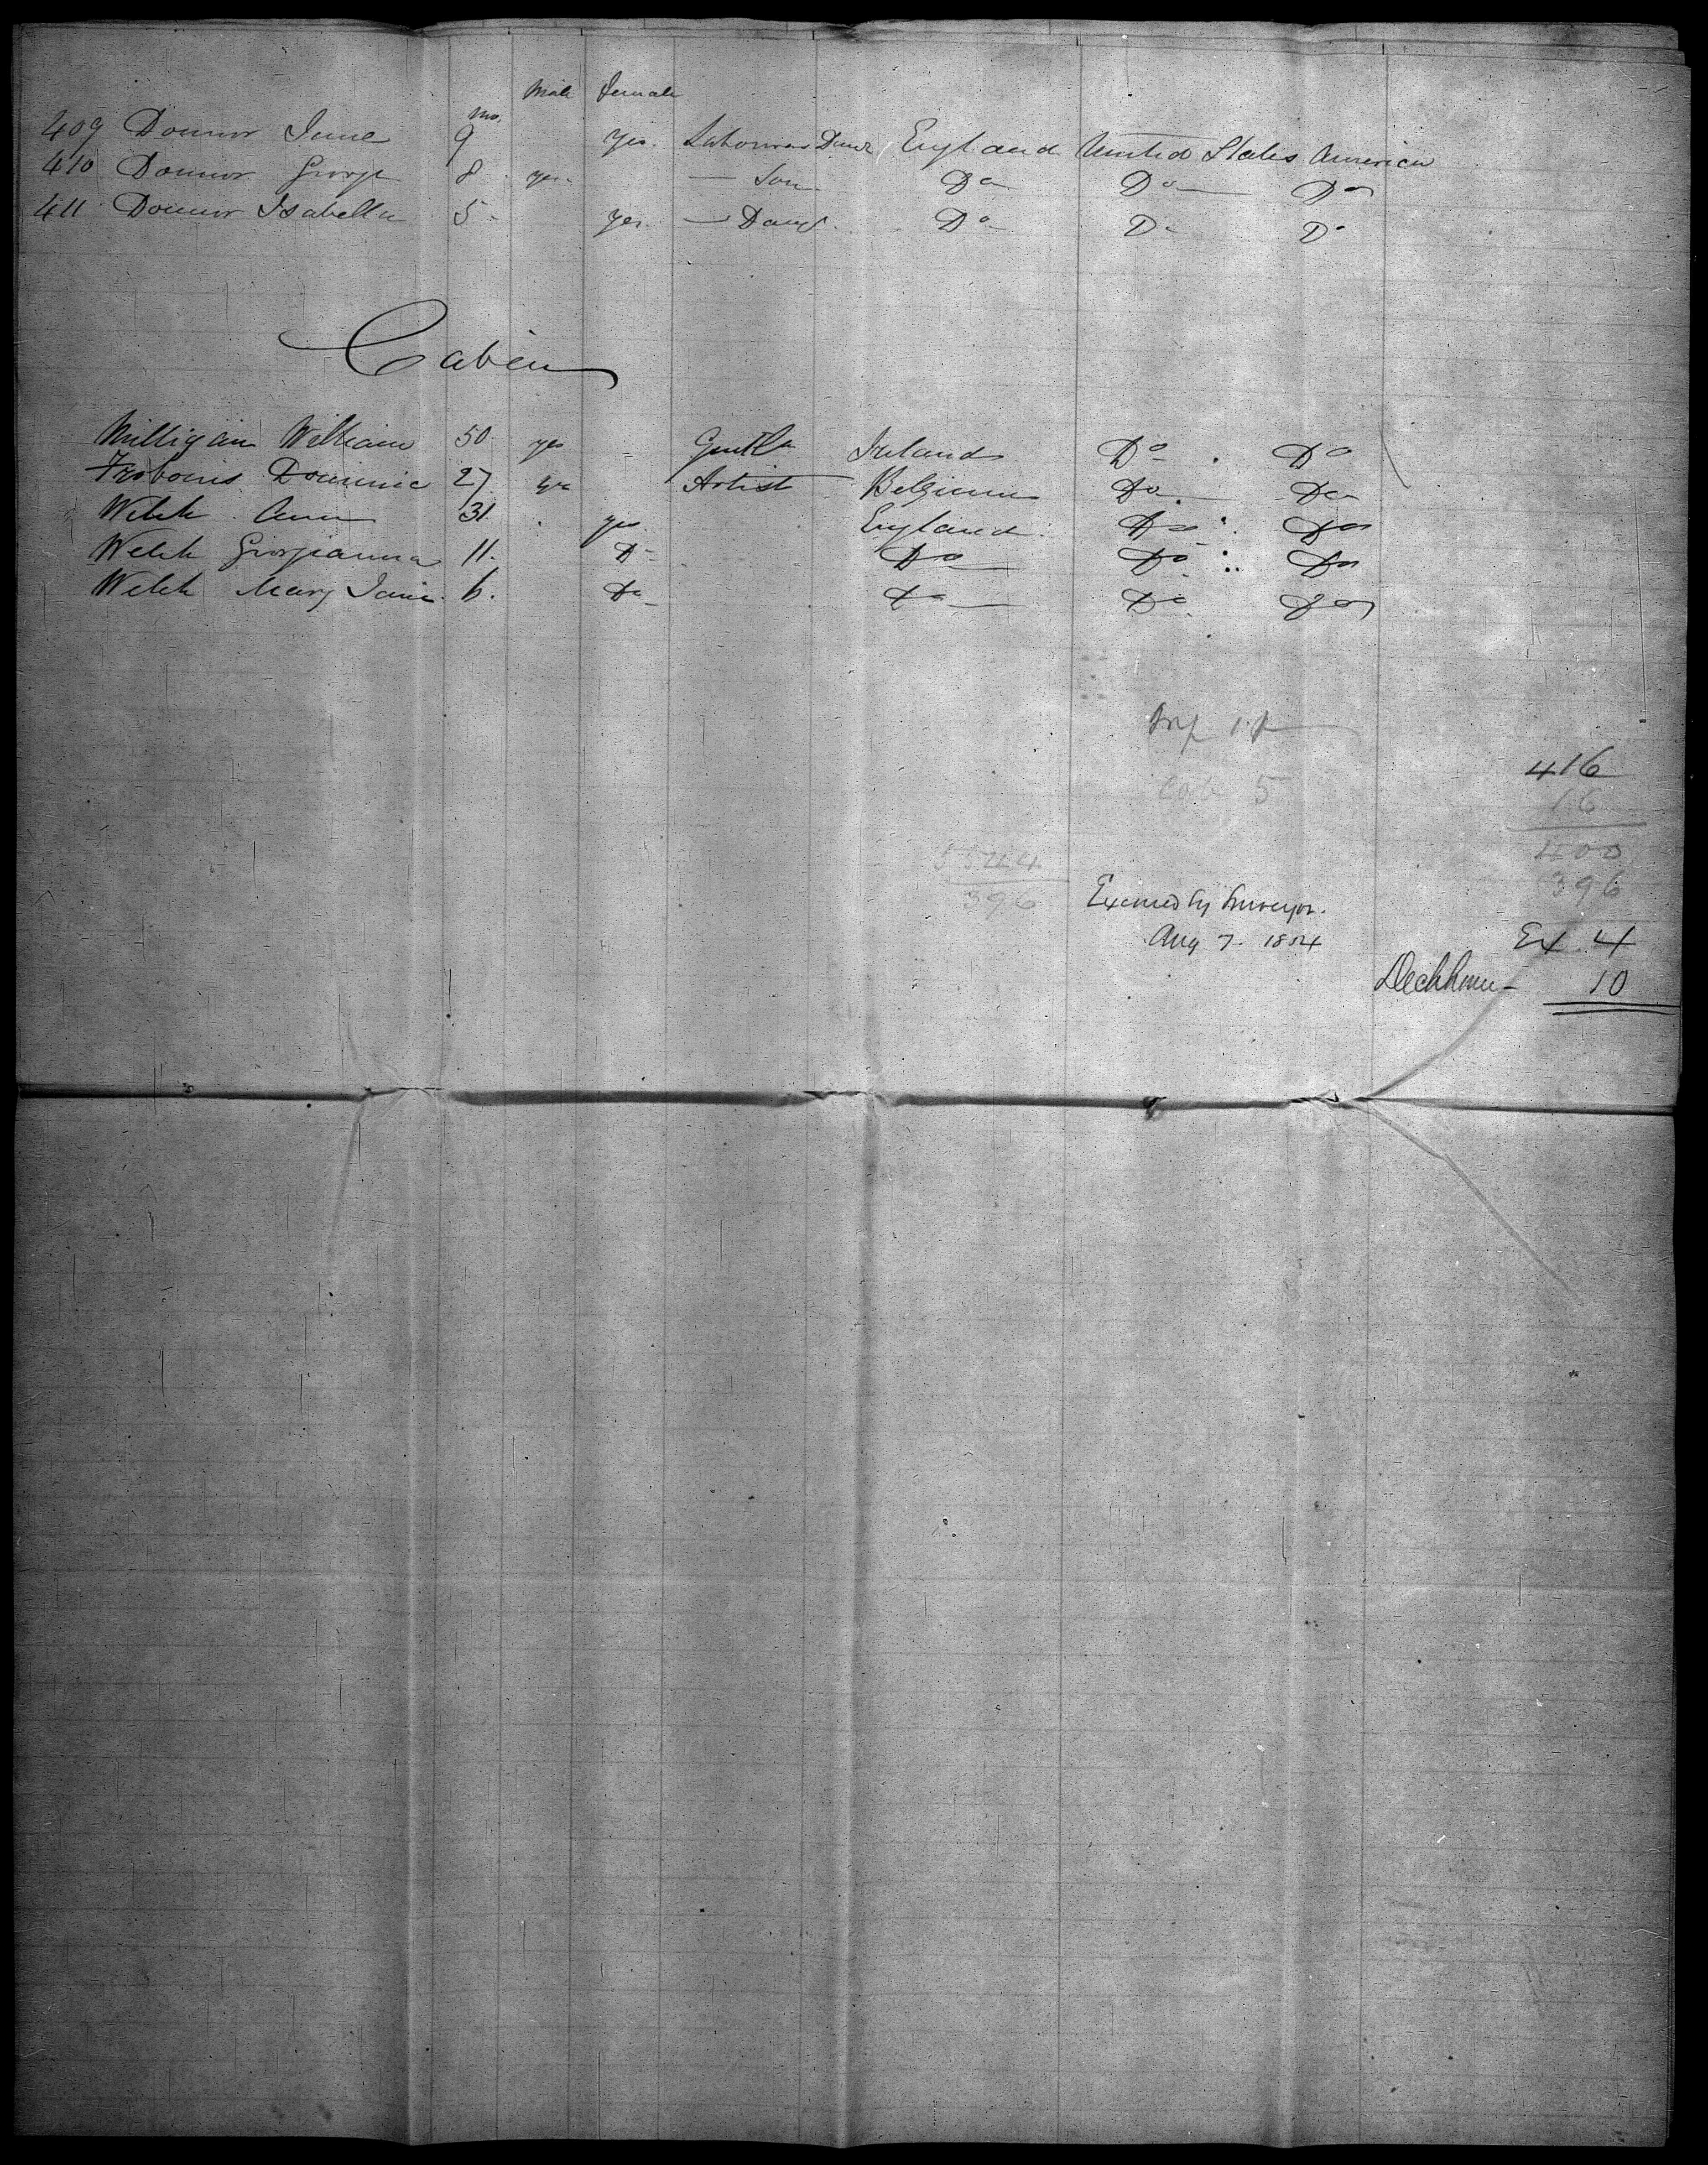 Male Female
409 Donnor Jane mo. 9 yes. Labourers Daur England United States America
410 Donnor George 8 yes — Son Do Do Do
411 Donnor Isabella 5 yes — Daur Do Do Do
Cabin
Milligan William 50 yes Gentln Ireland Do Do
Dominic 27 yes Artist Belgium Do Do
Welch Ann 31 yes England Do Do
Welch Georgianna 11. Do Do Do Do
Welch Mary Jane 6. Do Do Do Do
416
5
16
400
5544
396
396
by Surveyor.
Aug 7. 1854
Ex 4
Deckhouse - 10